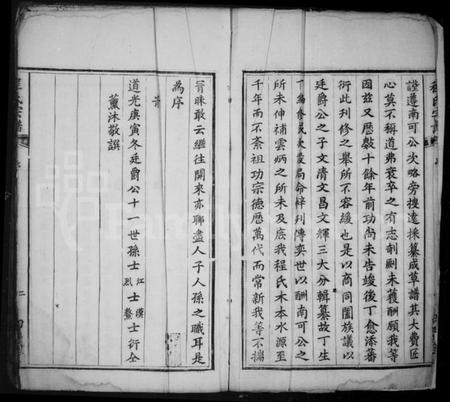 證遵南可公次略旁搜遠採纂成草譜其大費匠
心莫不稱道弗衰卒之有志剞劂未獲酬願我等
因兹又歷數十餘年前功尚未告竣後丁愈添蕃
衍此刊修之舉所不容緩也是以商同闔族議以
廷爵公之子文清文昌文輝三大分輯纂故丁生
局命梓列傳奕世以酬南可公之
所未伸補雲炳之所未及庶我程氏木本水源至
千年而不紊祖功宗德歷萬代而常新我等不揣
冒昧敢云繼往開來亦聊盡人子人孫之職耳是
為序
旹
道光庚寅冬廷爵公十一世孫士江漢士烈鰲士衍仝
薰沐敬譔
程氏宗譜